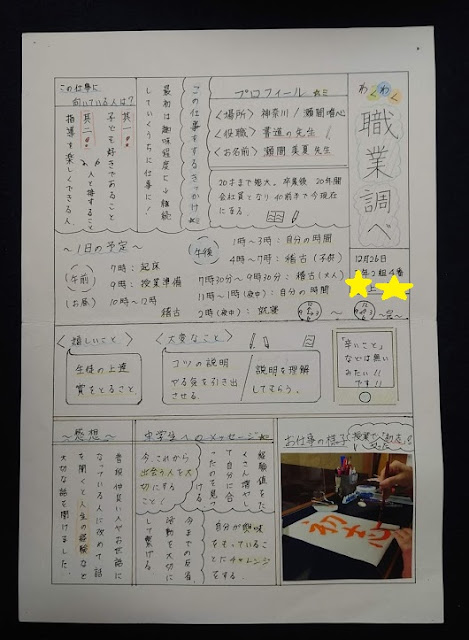 わくわく
職業調べ
12月26日
年2組4番
プロフィール
<場所> 神奈川/瀬間唯心
<役職> 書道の先生
<お名前> 瀬間美夏先生
20才まで短大。卒業後20年間
会社員となり40前半で今現在
に至る。
この仕事をするきっかけ
最初は趣味程度に→継続
していくうちに仕事に!
この仕事に
向いている人は?
其一
子ども好きであること
其二
人と接すること
指導を楽しくできる人。
〜1日の予定〜
午前
7時:起床
9時:授業準備
(お昼) 10時〜12時
稽古
午後
1時〜3時:自分の時間
4時〜7時:稽古(子供)
7時30分〜9時30分:稽古(大人)
11時〜1時(夜中):自分の時間
2時(夜中):就寝
<嬉しいこと>
生徒の上達
賞をとること。
<大変なこと>
コツの説明
やる気を引き出させる。
説明を理解
してもらう。
「辛いこと」
などは無い
みたい!!
です!!
〜感想〜
普段仲良い人やお世話に
なっている人に改めて話
を聞くと人生の経験など
大切な話を聞けました。
中学生へのメッセージ
経験値をた
くさん増やし
て自分に合
ったのを見つ
ける
今、これから
出会う人を大
切にする
こと!
自分が興味
をもっているこ
とにチャレンジ
をする。
今までの反省、
活動を大切に
して繋げる
お仕事の様子
初志